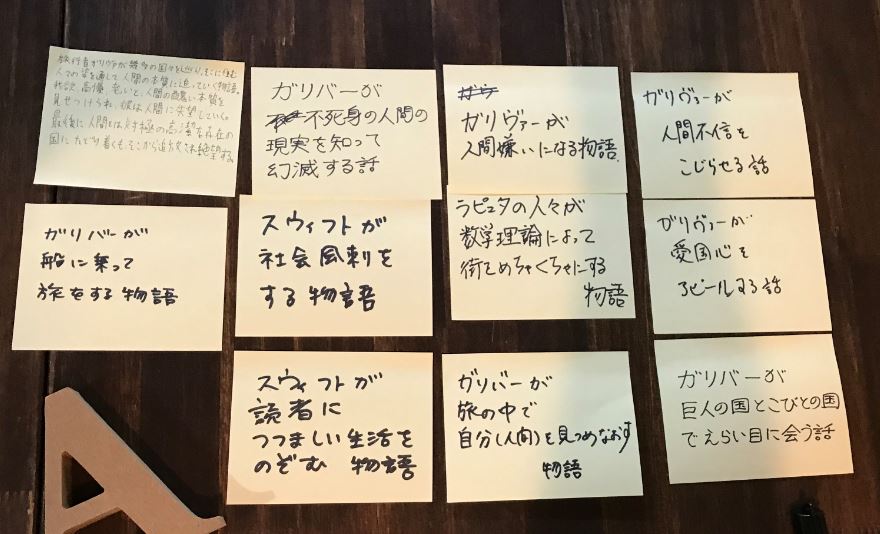 旅行者ガリヴァが幾多の国々を巡り、そこに住む
人々の姿を通して、人間の本質に迫っていく物語。
我欲、高慢、老いと、人間の醜悪い本質を
見せつけられ、彼は人間に失望していく。
最後に人間とは対極の高潔な存在の
国にたどり着くも、そこから追放され絶望する。
ガリバーが
不死身の人間の
現実を知って
幻滅する話
ガリヴァーが
人間嫌いになる物語。
ガリヴァーが
人間不信を
こじらせる話
ガリバーが
船に乗って
旅をする物語
スウィフトが
社会風刺を
する物語
ラピュタの人々が
数学理論によって
街をめちゃくちゃにする
物語
ガリヴァーが
愛国心を
アピールする話
スウィフトが
読者に
つつましい生活を
のぞむ 物語
ガリバーが
旅の中で
自分(人間)を見つめなおす
物語
ガリバーが
巨人の国とこびとの国
でえらい目に会う話
A